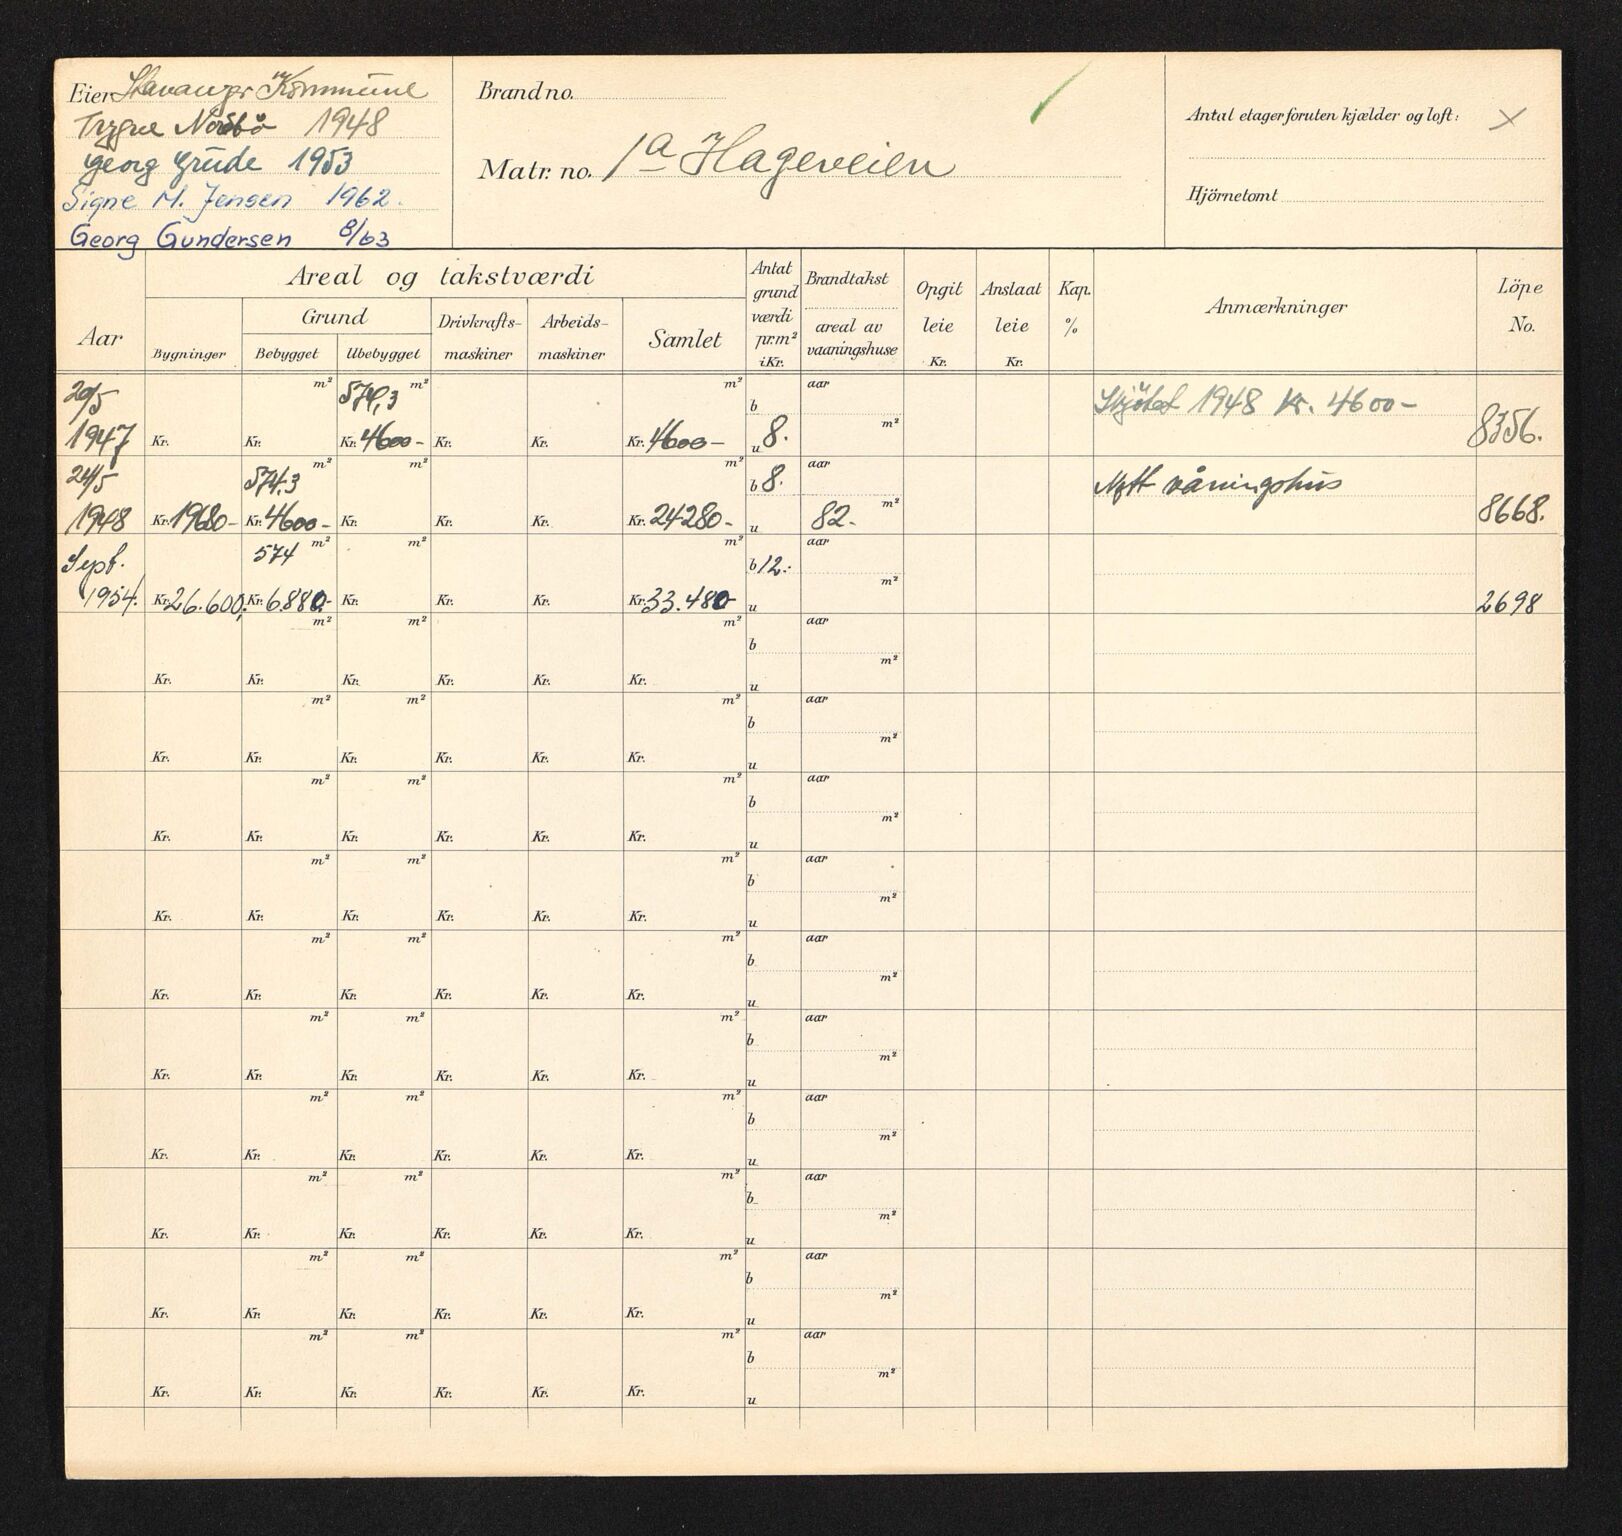 Eier Stavanger Kommune
Trygve Nordbö 1948
Georg Grude 1953
Signe M. Jensen 1962.
Georg Gundersen 8/63
Brand no.
Matr. no. 1a Hageveien
Antal etager foruten kjælder og loft: x
Hjörnetomt
Aar
Areal og takstværdi
Bygninger
Grund
Bebygget Ubebygget
Drivkrafts-
maskiner
Arbeids-
maskiner
Samlet
Antat
grund
værdi
pr.m²
i Kr.
Brandtakst
areal av
vaaningshuse
Opgit
leie
Kr.
Anslaat
leie
Kr.
Kap.
%
Anmærkninger
Löpe
No.
20/5 m² 574,3 m² m² b aar Skjötet 1948 kr. 4600-
1947 Kr. Kr. Kr. 4600- Kr. Kr. Kr. 4600- u 8. m² 8356.
24/5 574.3 m² m² m² b 8. aar Nytt våningshus
1948 Kr. 19680- Kr. 4600- Kr. Kr. Kr. Kr. 24280- u 82.- m² 8668.
Sept. 574 m² m² m² b 12.- aar
1954. Kr. 26.600,- Kr. 6.880.- Kr. Kr. Kr. Kr. 33.480- u m² 2698
m² m² m² b aar
Kr. Kr. Kr. Kr. Kr. Kr. u m²
m² m² m² b aar
Kr. Kr. Kr. Kr. Kr. Kr. u m²
m² m² m² b aar
Kr. Kr. Kr. Kr. Kr. Kr. u m²
m² m² m² b aar
Kr. Kr. Kr. Kr. Kr. Kr. u m²
m² m² m² b aar
Kr. Kr. Kr. Kr. Kr. Kr. u m²
m² m² m² b aar
Kr. Kr. Kr. Kr. Kr. Kr. u m²
m² m² m² b aar
Kr. Kr. Kr. Kr. Kr. Kr. u m²
m² m² m² b aar
Kr. Kr. Kr. Kr. Kr. Kr. u m²
m² m² m² b aar
Kr. Kr. Kr. Kr. Kr. Kr. u m²
m² m² m² b aar
Kr. Kr. Kr. Kr. Kr. Kr. u m²